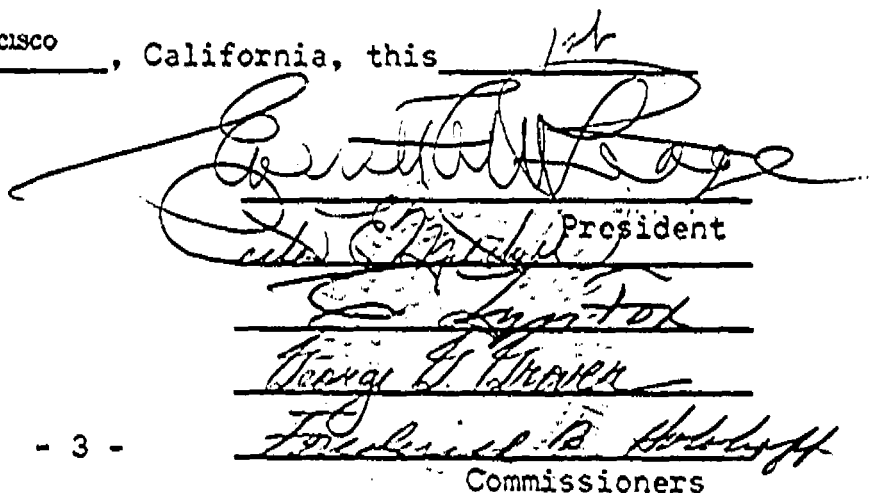 cisco, California, this 1st
President
E. Lyn Fox
George G. Grover
Frederick B. Holoboff
- 3 -
Commissioners